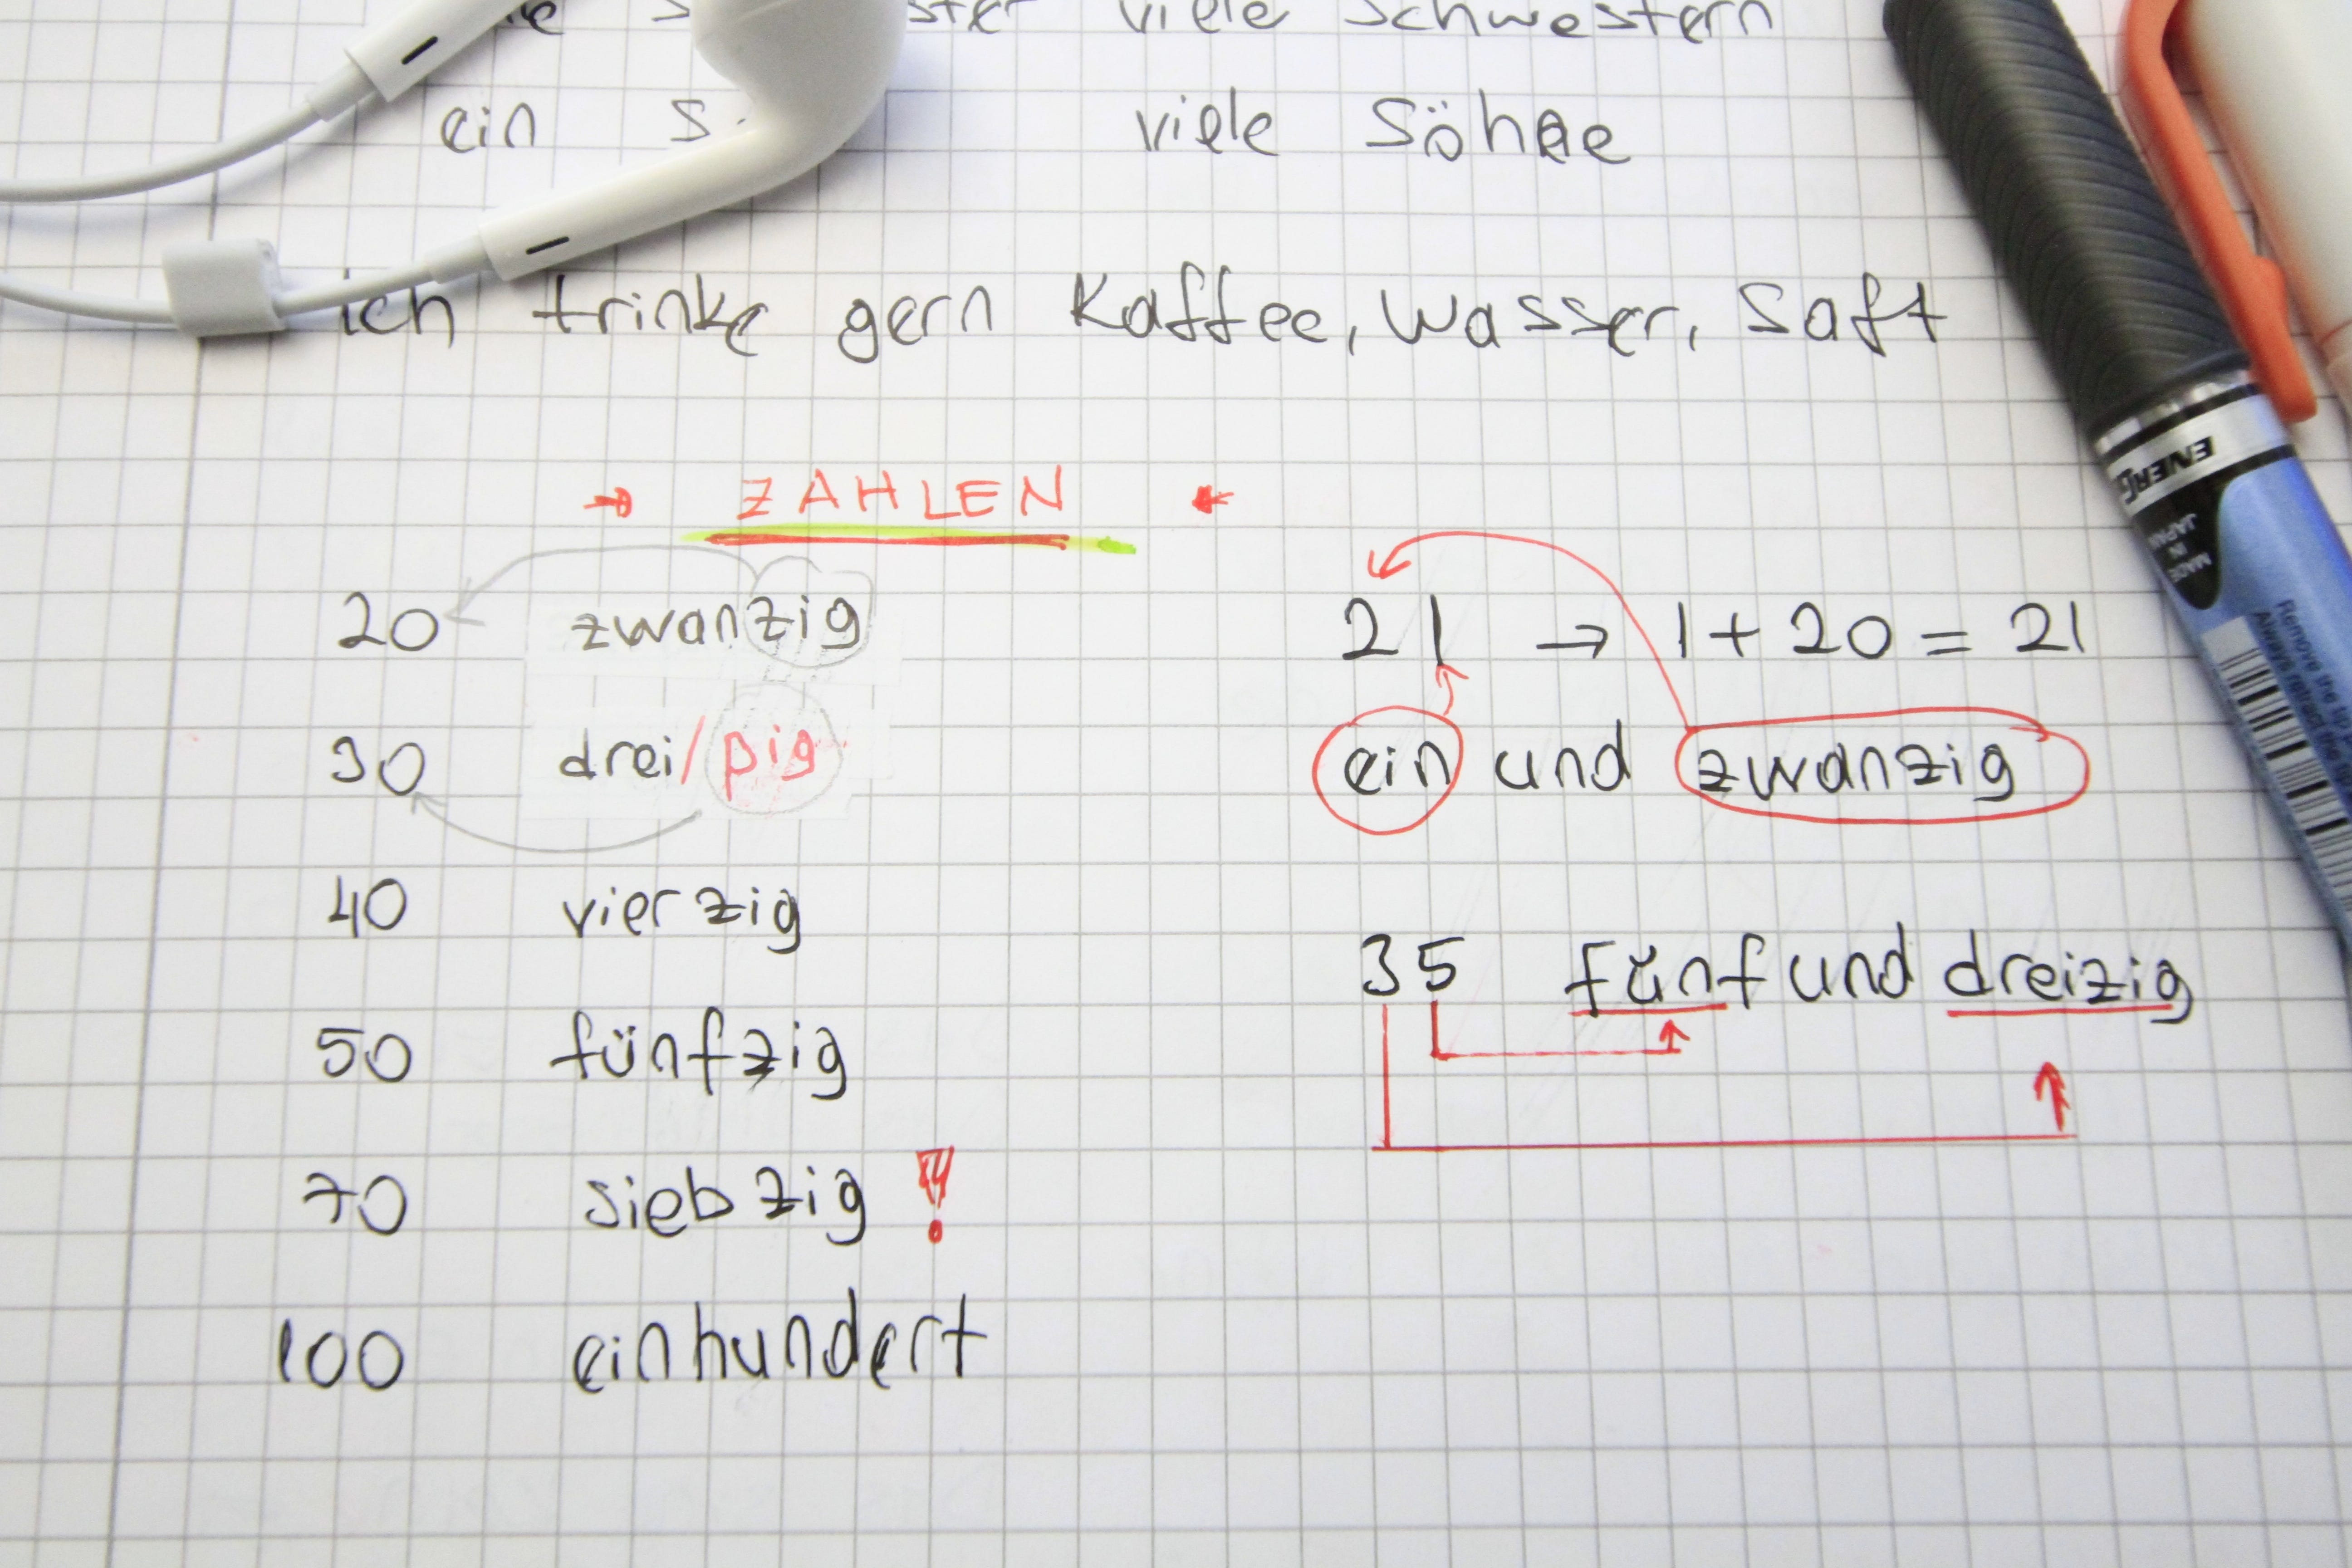 viele Schwestern
ein viele Söhne
ich trinke gern Kaffee, Wasser, Saft
→ ZAHLEN ←
20 zwanzig
21 → 1 + 20 = 21
30 drei/ßig
ein und zwanzig
40 vierzig
35 fünf und dreizig
50 fünfzig
70 siebzig !
100 einhundert
ENERG
MADE IN JAPAN
Remove the